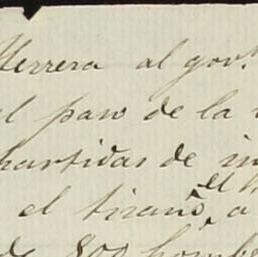 Herrera al gov.
el paso de la
partidas de in
el
el tirano, a
de 800 hombre